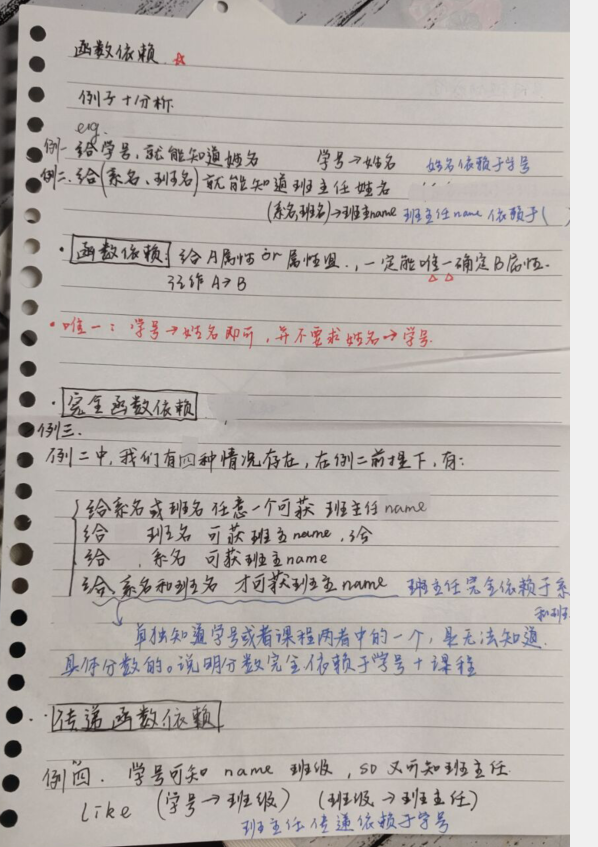 函数依赖 ☆
例子+分析
eg.
例一.给学号,就能知道姓名 学号→姓名 姓名依赖于学号
例二.给(系名、班名)就能知道班主任姓名 ...
(系名,班名)→班主name 班主任name依赖于( )
·函数依赖:给A属性or属性组.,一定能唯一确定B属性.
记作A→B
·唯一:学号→姓名即可,并不要求姓名→学号.
·完全函数依赖
例三.
例二中,我们有四种情况存在,在例二前提下,有:
给系名或班名任意一个可获 班主任name
给 班名 可获班主name,给
给 .系名 可获班主name
给.系名和班名 才可获班主name 班主任完全依赖于系
和班
单独知道学号或者课程两者中的一个,是无法知道.
具体分数的。说明分数完全依赖于学号+课程
·传递函数依赖
例四. 学号可知 name 班级,so又可知班主任.
like (学号→班级) (班级→班主任)
班主任传递依赖于学号